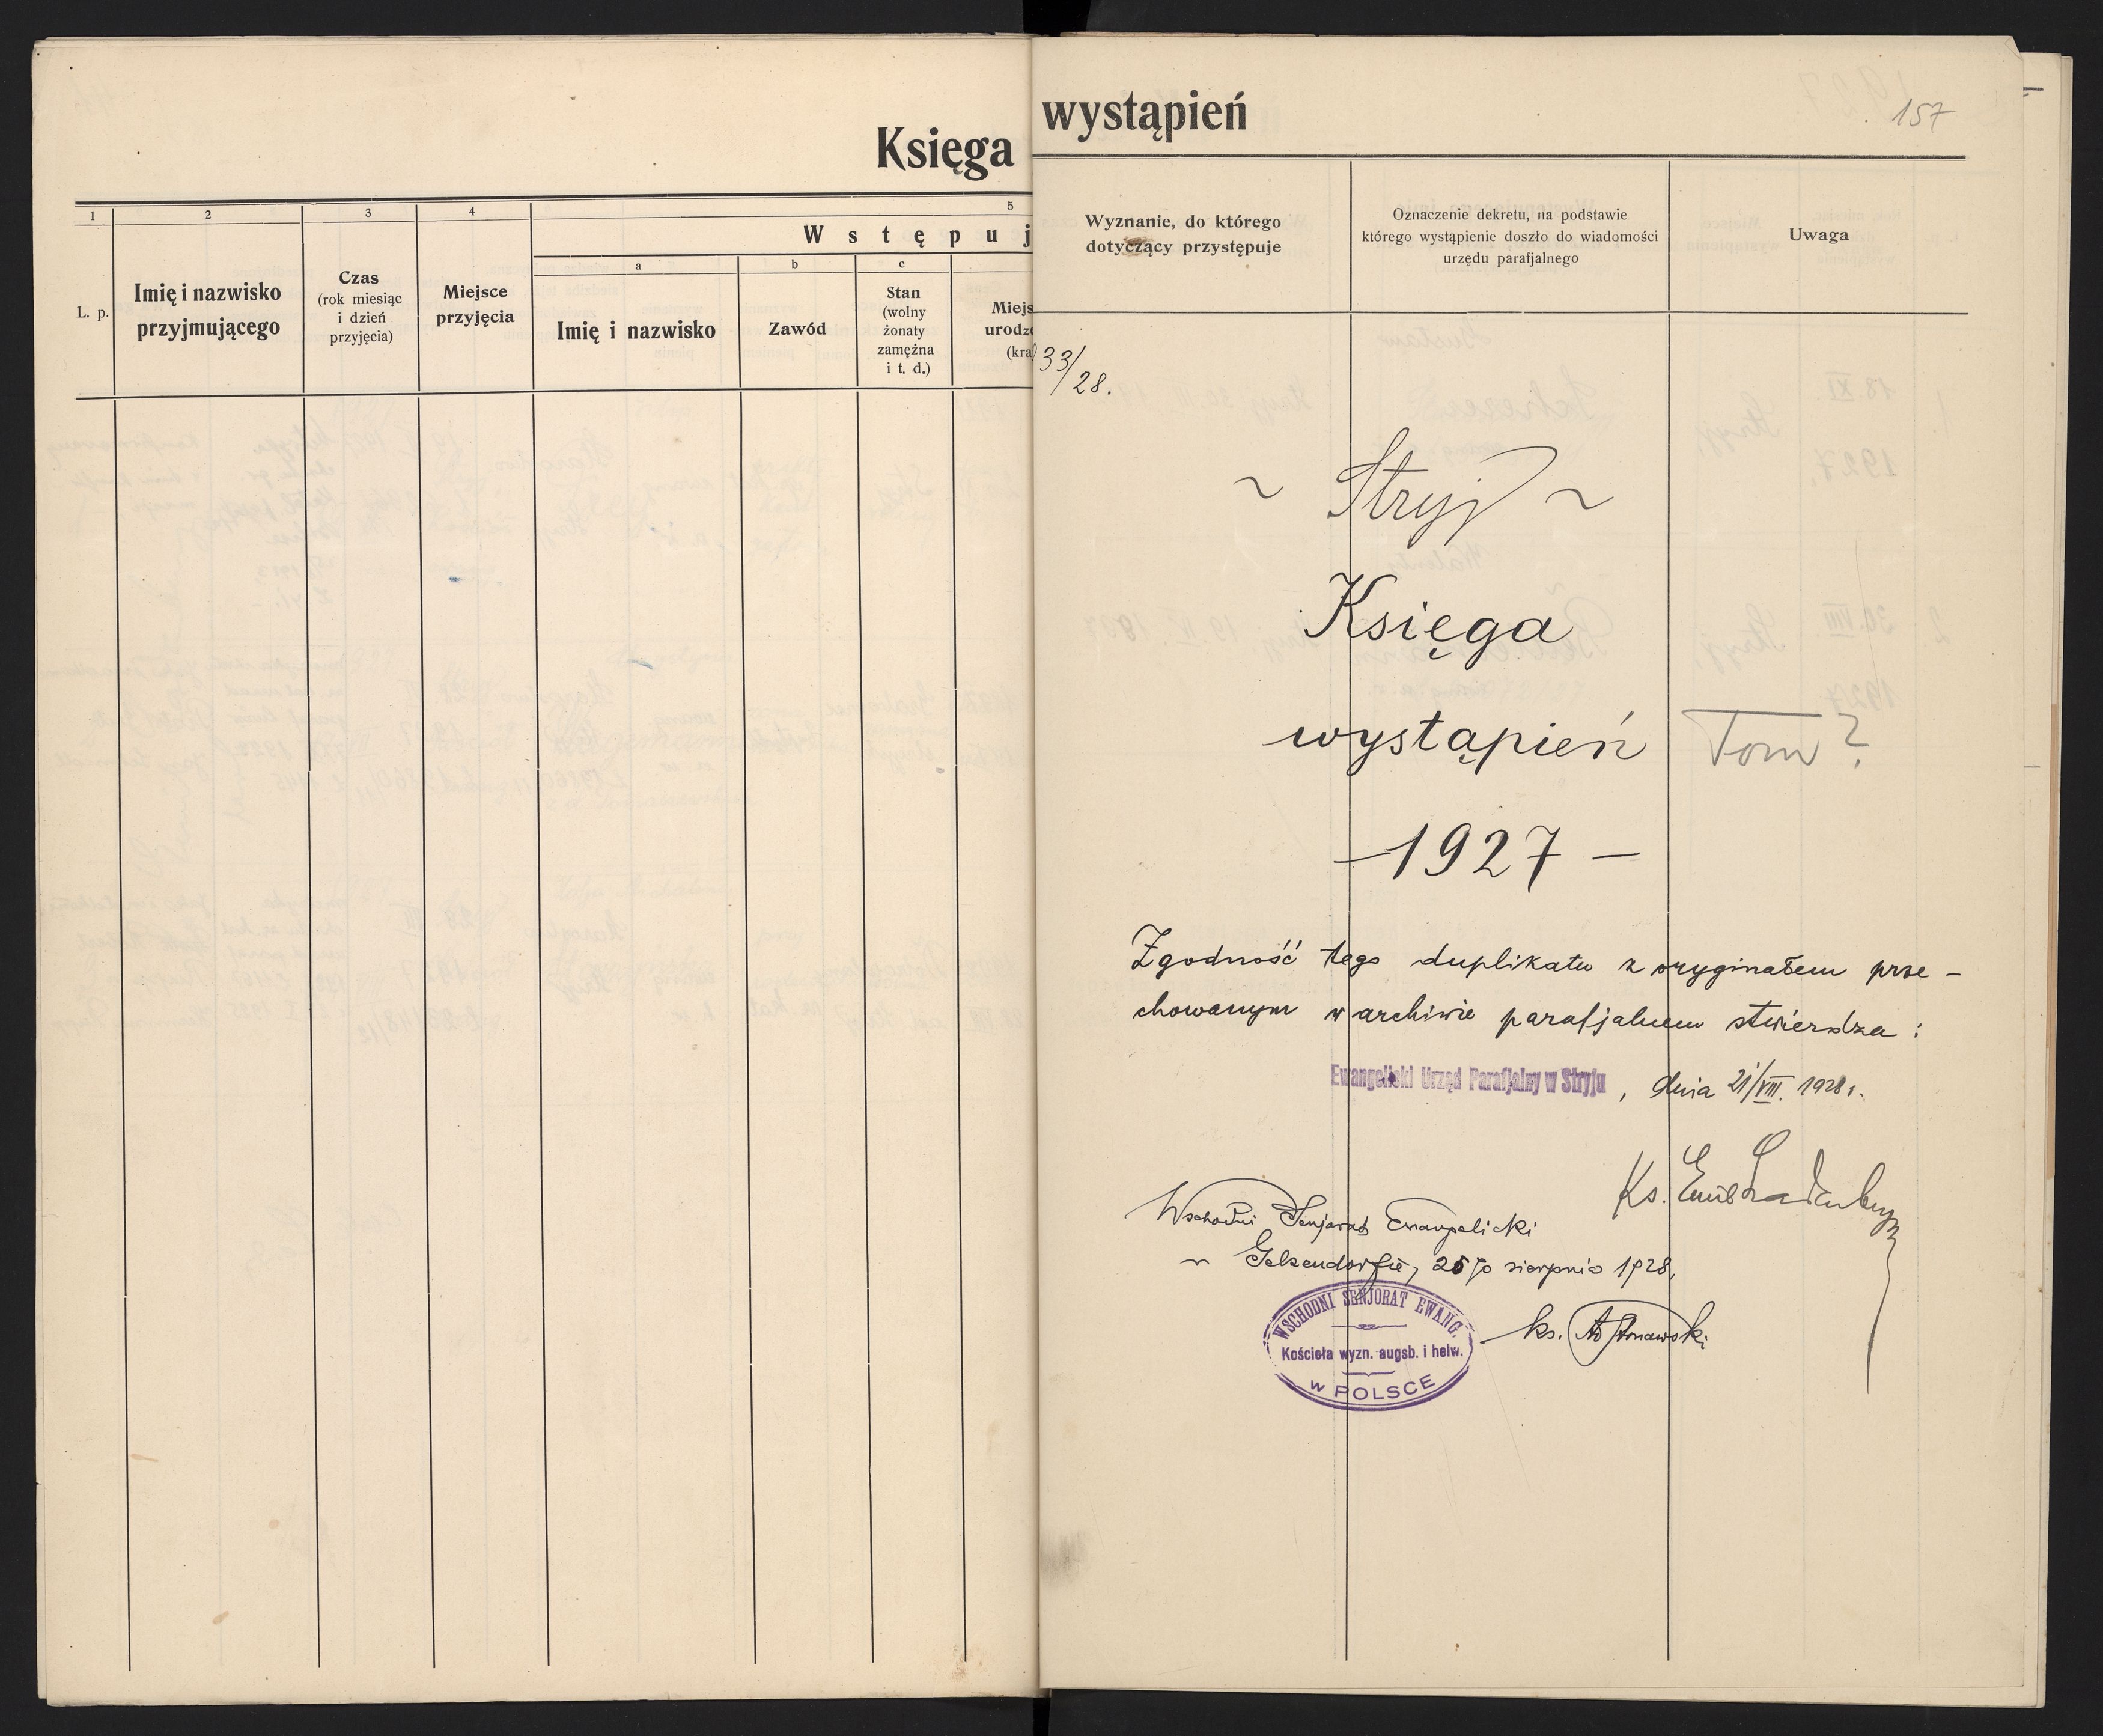 Księga
1
2
3
4
5
Wstępuj
L. p.
Imię i nazwisko
przyjmującego
Czas
(rok miesiąc
i dzień
przyjęcia)
Miejsce
przyjęcia
a
b
c
Imię i nazwisko
Zawód
Stan
(wolny
żonaty
zamężna
i t. d.)
Miejs
urodz
(kra
wystąpień
157
Wyznanie, do którego
dotyczący przystępuje
Oznaczenie dekretu, na podstawie
którego wystąpienie doszło do wiadomości
urzędu parafjalnego
Uwaga
33/28.
~ Stryj ~
Księga
wystąpień Tom?
—1927—
Zgodność tego duplikatu z oryginałem prze-
chowanym w archiwie parafjalnem stwierdza:
Ewangelicki Urząd Parafjalny w Stryju, dnia 21/VIII. 1928 r.
Ks. Emil Ladenberger
Wschodni Senjorat Ewangelicki
w Gelsendorfie, 25go sierpnia 1928.
WSCHODNI SENJORAT EWANG.
Kościoła wyzn. augsb. i helw.
w POLSCE
ks.